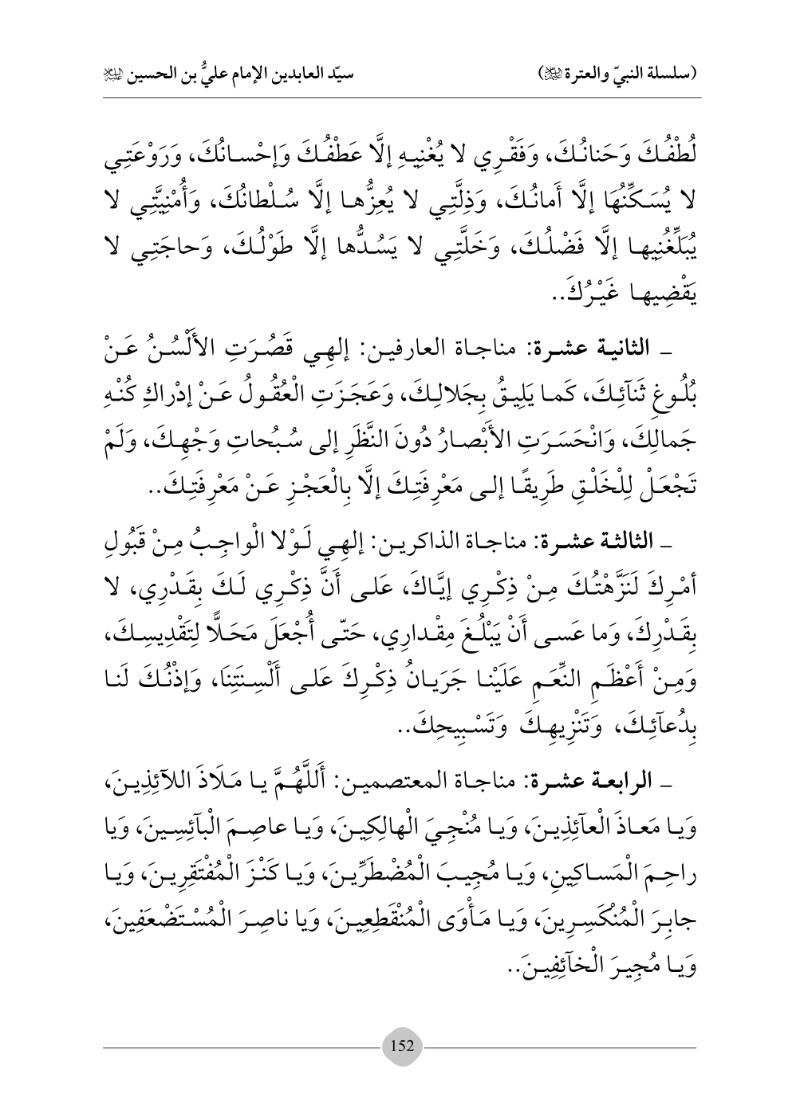 (سلسلة النبيّ والعترة ﷺ) سيّد العابدين الإمام عليُّ بن الحسين
لُطْفُكَ وَحَنانُكَ، وَفَقْرِي لا يُغْنِيهِ إلَّا عَطْفُكَ وَإحْسانُكَ، وَرَوْعَتِي
لا يُسَكِّنُهَا إلَّا أَمانُكَ، وَذِلَّتِي لا يُعِزُّها إلَّا سُلْطانُكَ، وَأُمْنِيَّتِي لا
يُبَلِّغُنِيها إلَّا فَضْلُكَ، وَخَلَّتِي لا يَسُدُّها إلَّا طَوْلُكَ، وَحاجَتِي لا
يَقْضِيها غَيْرُكَ..
ـ الثانية عشرة: مناجاة العارفين: إلهِي قَصُرَتِ الأَلْسُنُ عَنْ
بُلُوغِ ثَنَآئِكَ، كَما يَلِيقُ بِجَلالِكَ، وَعَجَزَتِ الْعُقُولُ عَنْ إدْراكِ كُنْهِ
جَمالِكَ، وَانْحَسَرَتِ الأَبْصارُ دُونَ النَّظَرِ إلى سُبُحاتِ وَجْهِكَ، وَلَمْ
تَجْعَلْ لِلْخَلْقِ طَرِيقًا إلى مَعْرِفَتِكَ إلَّا بِالْعَجْزِ عَنْ مَعْرِفَتِكَ..
ـ الثالثة عشرة: مناجاة الذاكرين: إلهِي لَوْلا الْواجِبُ مِنْ قَبُولِ
أمْرِكَ لَنَزَّهْتُكَ مِنْ ذِكْرِي إيَّاكَ، عَلى أَنَّ ذِكْرِي لَكَ بِقَدْرِي، لا
بِقَدْرِكَ، وَما عَسى أَنْ يَبْلُغَ مِقْدارِي، حَتّى أُجْعَلَ مَحَلًّا لِتَقْدِيسِكَ،
وَمِنْ أَعْظَمِ النِّعَمِ عَلَيْنا جَرَيانُ ذِكْرِكَ عَلى أَلْسِنَتِنَا، وَإذْنُكَ لَنا
بِدُعآئِكَ، وَتَنْزِيهِكَ وَتَسْبِيحِكَ..
ـ الرابعة عشرة: مناجاة المعتصمين: أَللَّهُمَّ يا مَلَاذَ اللآئِذِينَ،
وَيا مَعاذَ الْعآئِذِينَ، وَيا مُنْجِيَ الْهالِكِينَ، وَيا عاصِمَ الْبآئِسِينَ، وَيا
راحِمَ الْمَساكِينِ، وَيا مُجِيبَ الْمُضْطَرِّينَ، وَيا كَنْزَ الْمُفْتَقِرِينَ، وَيا
جابِرَ الْمُنْكَسِرِينَ، وَيا مَأْوَى الْمُنْقَطِعِينَ، وَيا ناصِرَ الْمُسْتَضْعَفِينَ،
وَيا مُجِيرَ الْخآئِفِينَ..
152